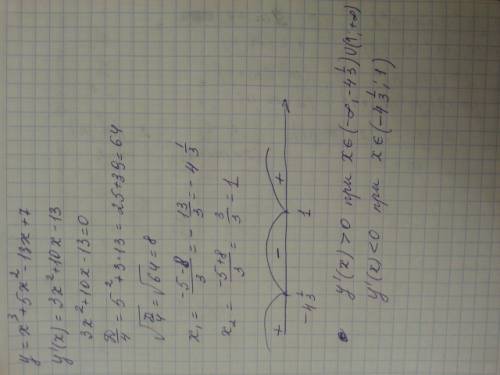 y = x³ + 5x² - 13x + 7
y'(x) = 3x² + 10x - 13
3x² + 10x - 13 = 0
D/4 = 5² + 3·13 = 25 + 39 = 64
√D/4 = √64 = 8
x₁ = -5-8/3 = -13/3 = -4 1/3
x₂ = -5+8/3 = 3/3 = 1
+ - +
-4 1/3 1
y'(x) > 0 при x∈(-∞, -4 1/3)∪(1, +∞)
y'(x) < 0 при x∈(-4 1/3; 1)